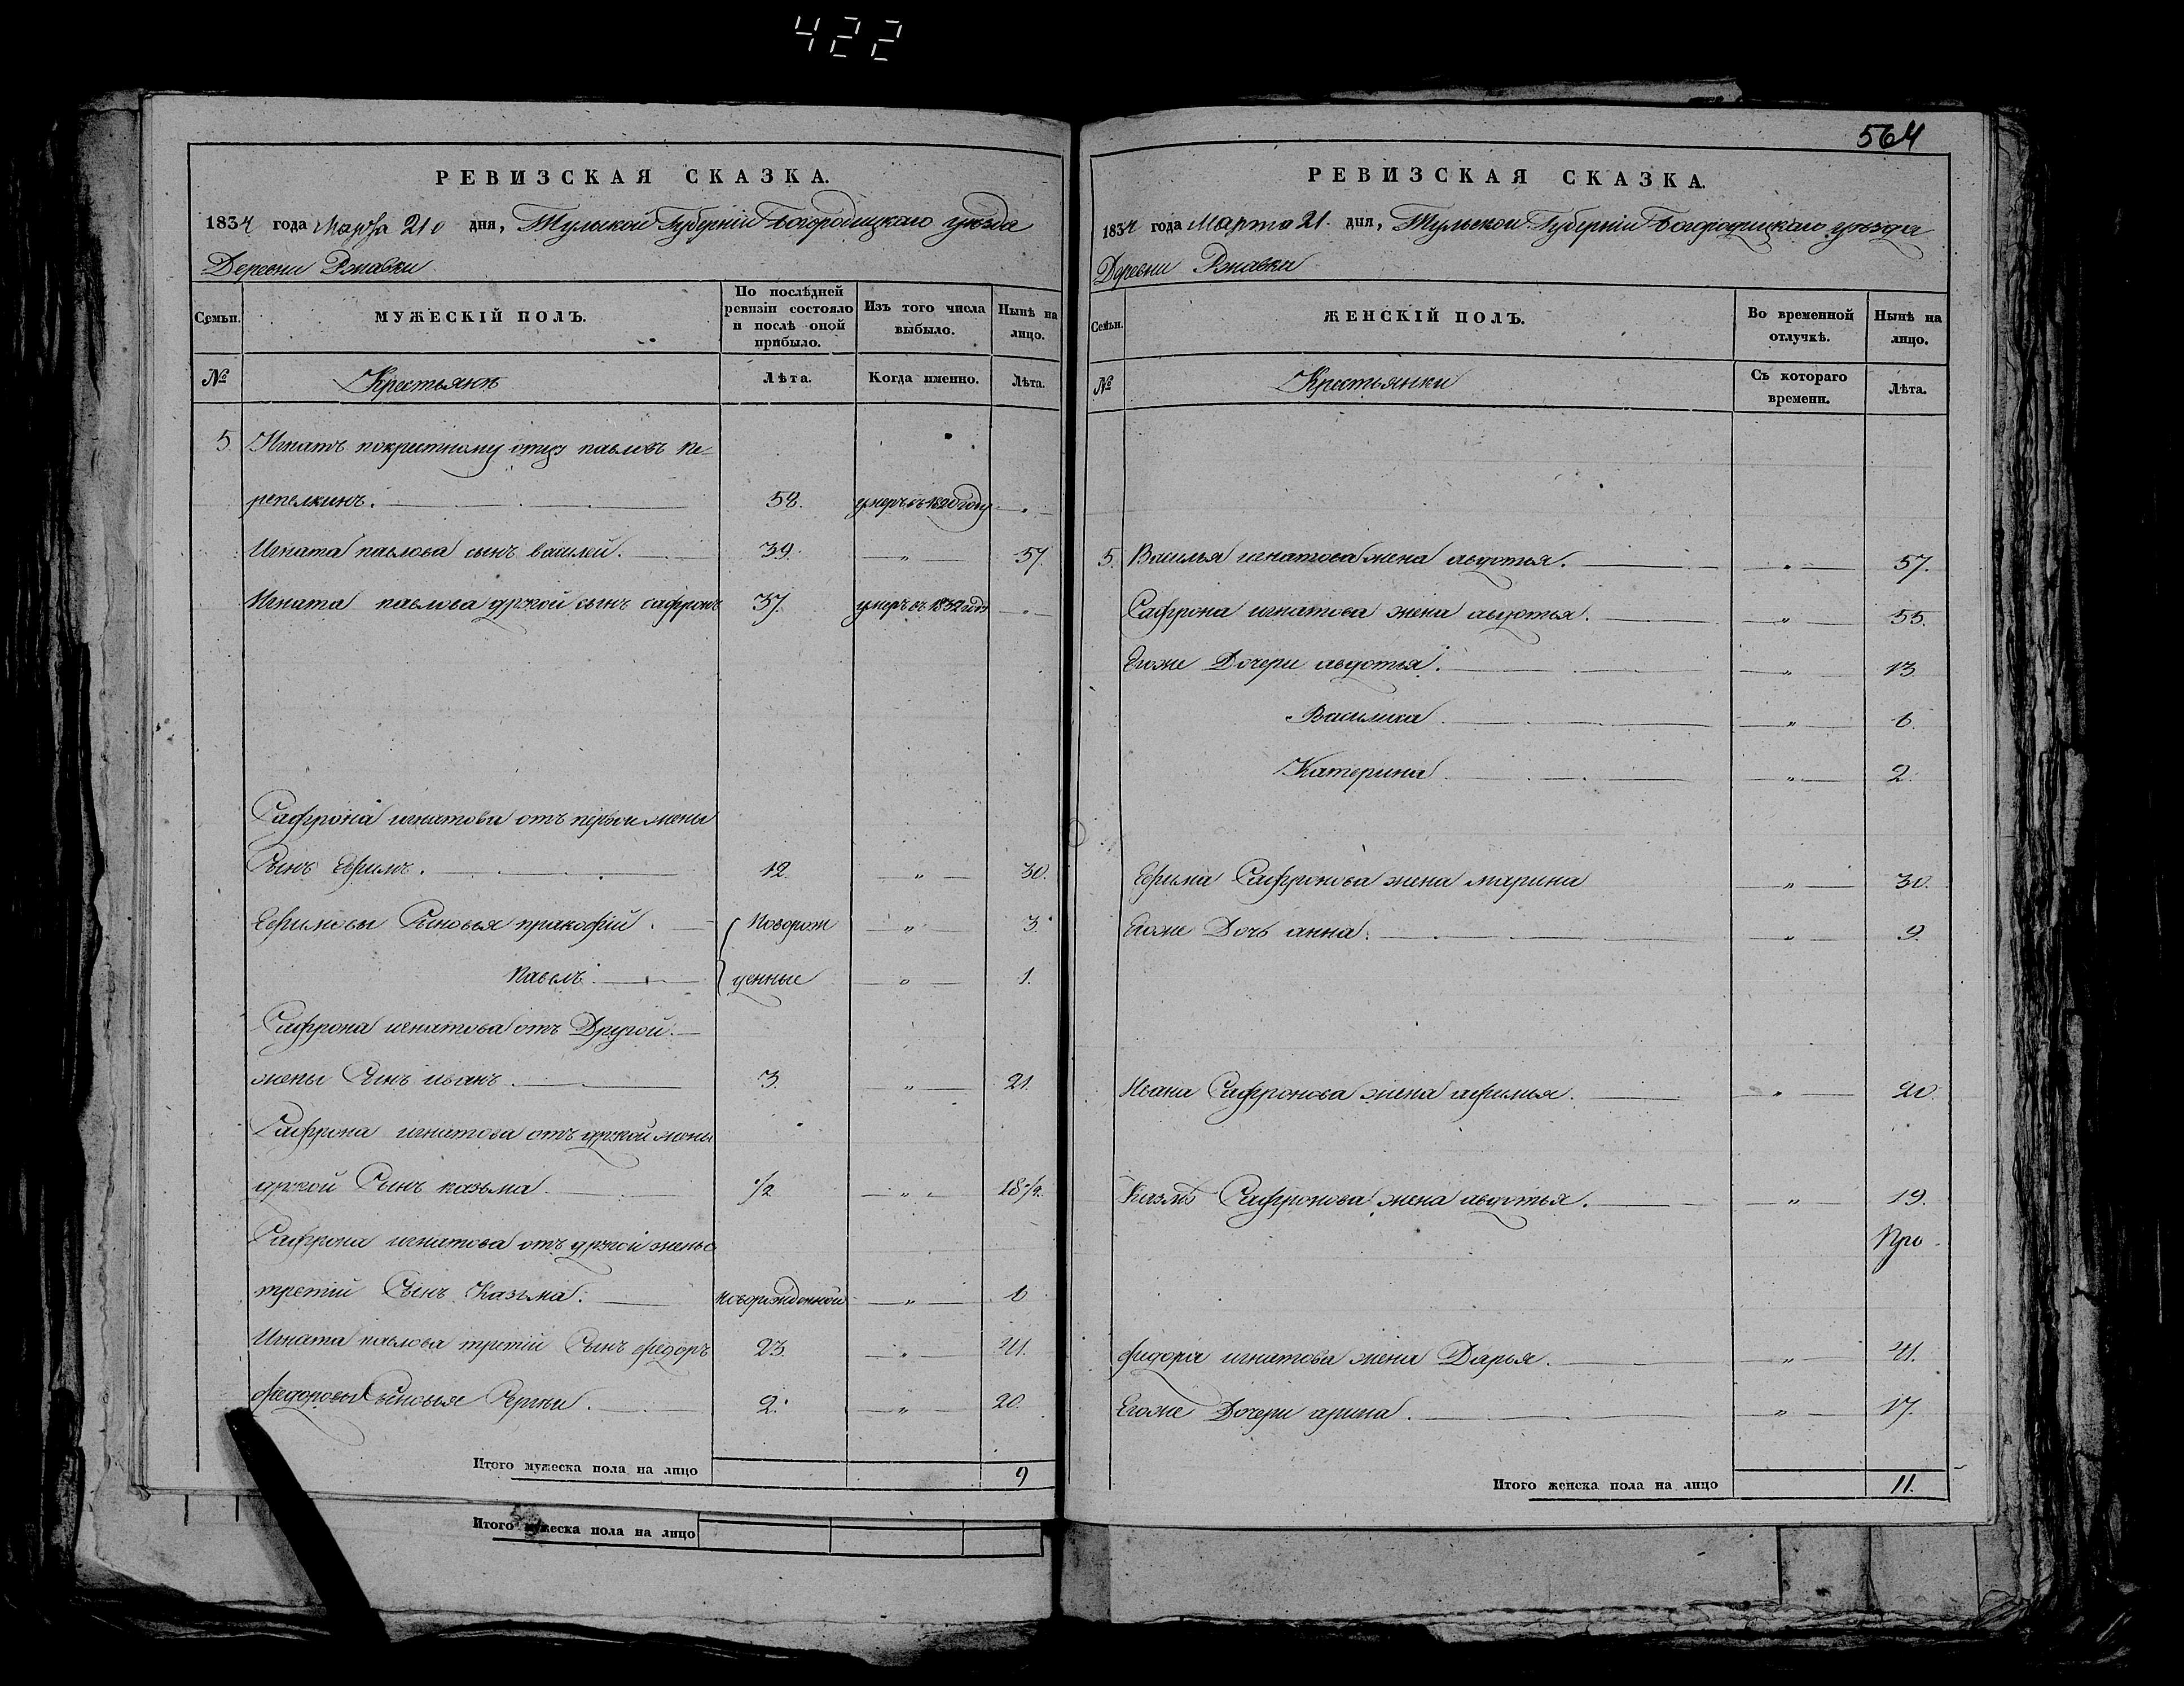 422
РЕВИЗСКАЯ СКАЗКА.
1834 года Марта 21 о дня, Тульской Губерніи Богородицкаго уѣзда
Деревни Ржавки
Семьи.
МУЖЕСКІЙ ПОЛЪ.
По послѣдней
ревизіи состояло
и послѣ оной
прибыло.
Изъ того числа
выбыло.
Нынѣ на
лицо.
№
Крестьянѣ
Лѣта.
Когда именно.
Лѣта.
5. Игнатъ покрестному отцу павловъ пе-
репелкинъ. 58. умеръ въ 1820 году
Игната павлова сынъ василей. 39. " 57.
Игната павлова другой сынъ сафронъ 37. умеръ въ 1832 году
Сафрона игнатова отъ первои жены
Сынъ Ефимъ. 12. " 30.
Ефимовы Сыновья пракофій. Новорож " 3.
павелъ денные " 1.
Сафрона игнатова отъ Другой.
жены Сынъ иванъ. 3. " 21.
Сафрона игнатова отъ другой жены
другой Сынъ казьма 1/2 " 18 1/2.
Сафрона игнатова отъ другой жены
третій Сынъ Казьма. новорожденной "
Игната павлова третій Сынъ федоръ 23. " 41.
федоровы Сыновья Сергѣи. 2. " 20.
Итого мужеска пола на лицо 9
Итого мужеска пола на лицо
564
РЕВИЗСКАЯ СКАЗКА.
1834 года Марта 21. дня, Тульской Губерніи Богородицкаго уѣзда
Деревни Ржавки
Семьи.
ЖЕНСКІЙ ПОЛЪ.
Во временной
отлучкѣ.
Нынѣ на
лицо.
№
Крестьянки
Съ котораго
времени.
Лѣта.
5. Василья игнатова жена авдотья. " 57.
Сафрона игнатова жена авдотья. " 55.
Егоже Дочери авдотья. " 13.
Василиса " 6.
Катерина " 2.
Ефима Сафронова жена марина " 30.
Егоже Дочь анна. " 9.
Ивана Сафронова жена афимья. " 20.
Казмы Сафронова жена авдотья. " 19.
Про
федора игнатова жена Дарья. " 41.
Егоже Дочери арина. " 17.
Итого женска пола на лицо 11.